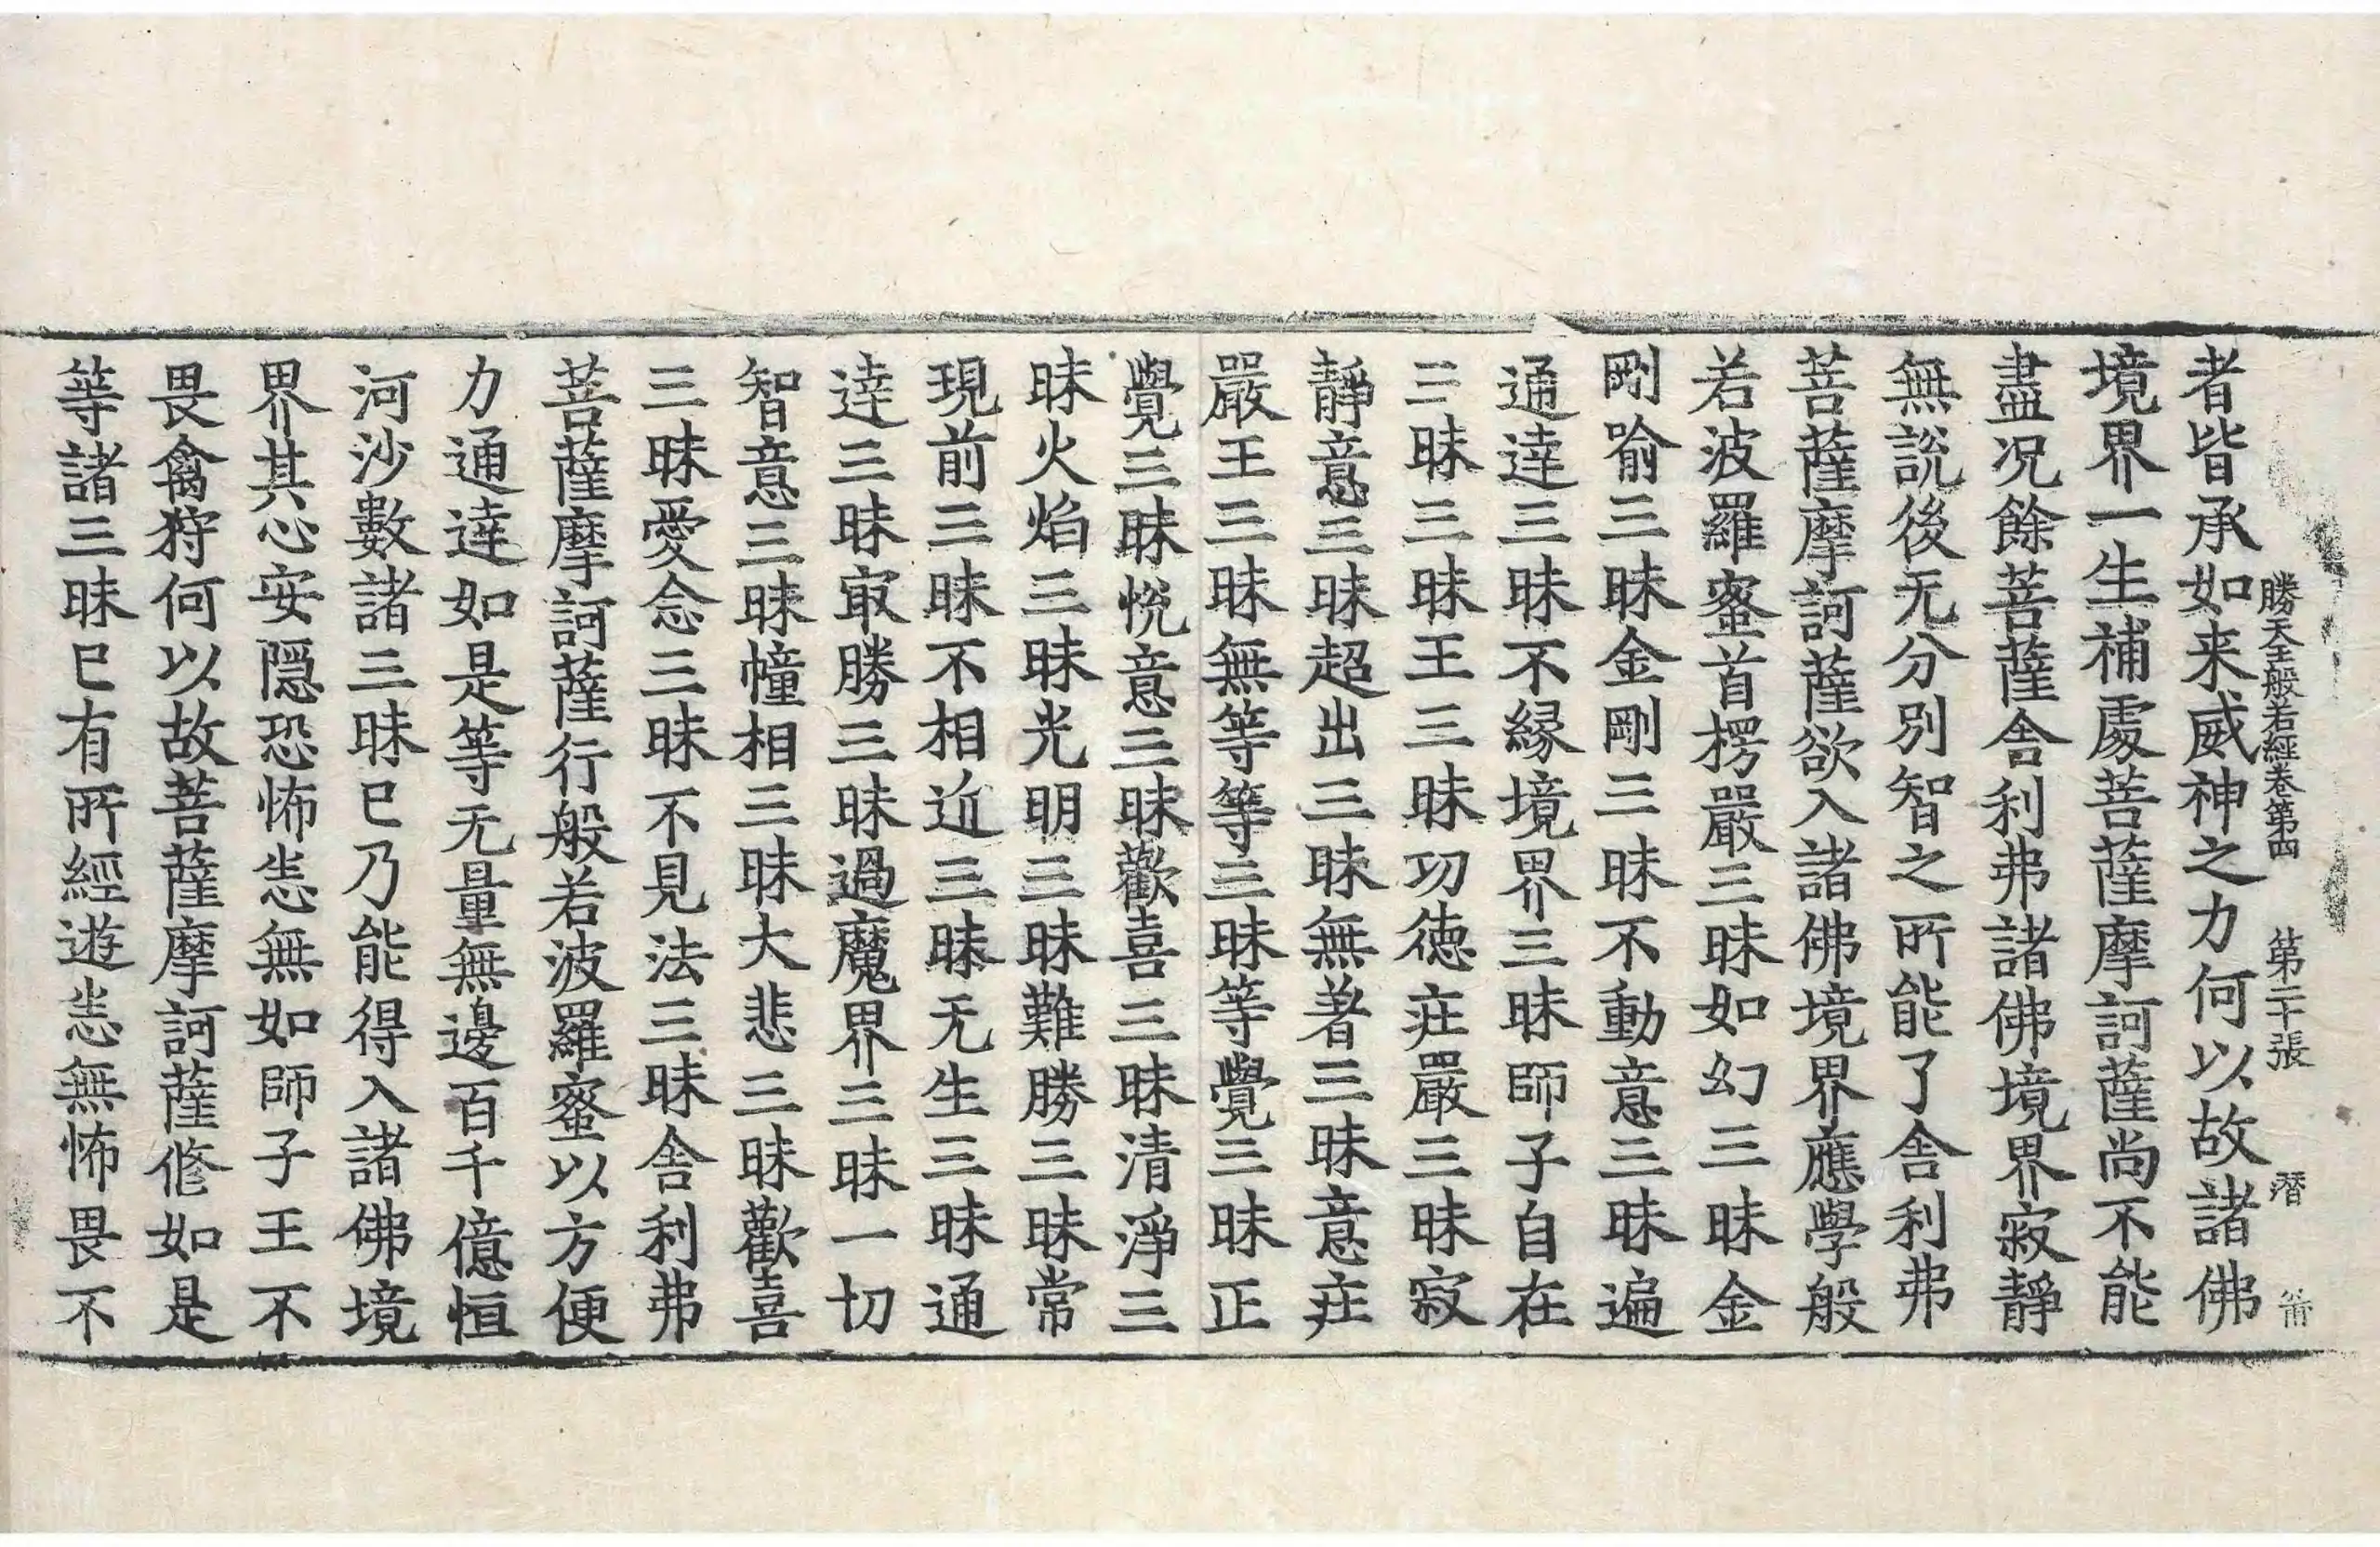 勝天王般若經卷第四 第二十張 潛
者皆承如来威神之力何以故諸佛
境界一生補處菩薩摩訶薩尚不能
盡况餘菩薩舍利弗諸佛境界寂靜
無說後无分別智之所能了舍利弗
菩薩摩訶薩欲入諸佛境界應學般
若波羅蜜首楞嚴三昧如幻三昧金
剛喻三昧金剛三昧不動意三昧遍
通達三昧不縁境界三昧師子自在
三昧三昧王三昧功德莊嚴三昧寂
靜意三昧超出三昧無著三昧意莊
嚴王三昧無等等三昧等覺三昧正
覺三昧悅意三昧歡喜三昧清淨三
昧火焰三昧光明三昧難勝三昧常
現前三昧不相近三昧无生三昧通
達三昧冣勝三昧過魔界三昧一切
智意三昧幢相三昧大悲三昧歡喜
三昧愛念三昧不見法三昧舍利弗
菩薩摩訶薩行般若波羅蜜以方便
力通達如是等无量無邊百千億恒
河沙數諸三昧已乃能得入諸佛境
界其心安隱恐怖悉無如師子王不
畏禽狩何以故菩薩摩訶薩修如是
等諸三昧已有所經遊悉無怖畏不